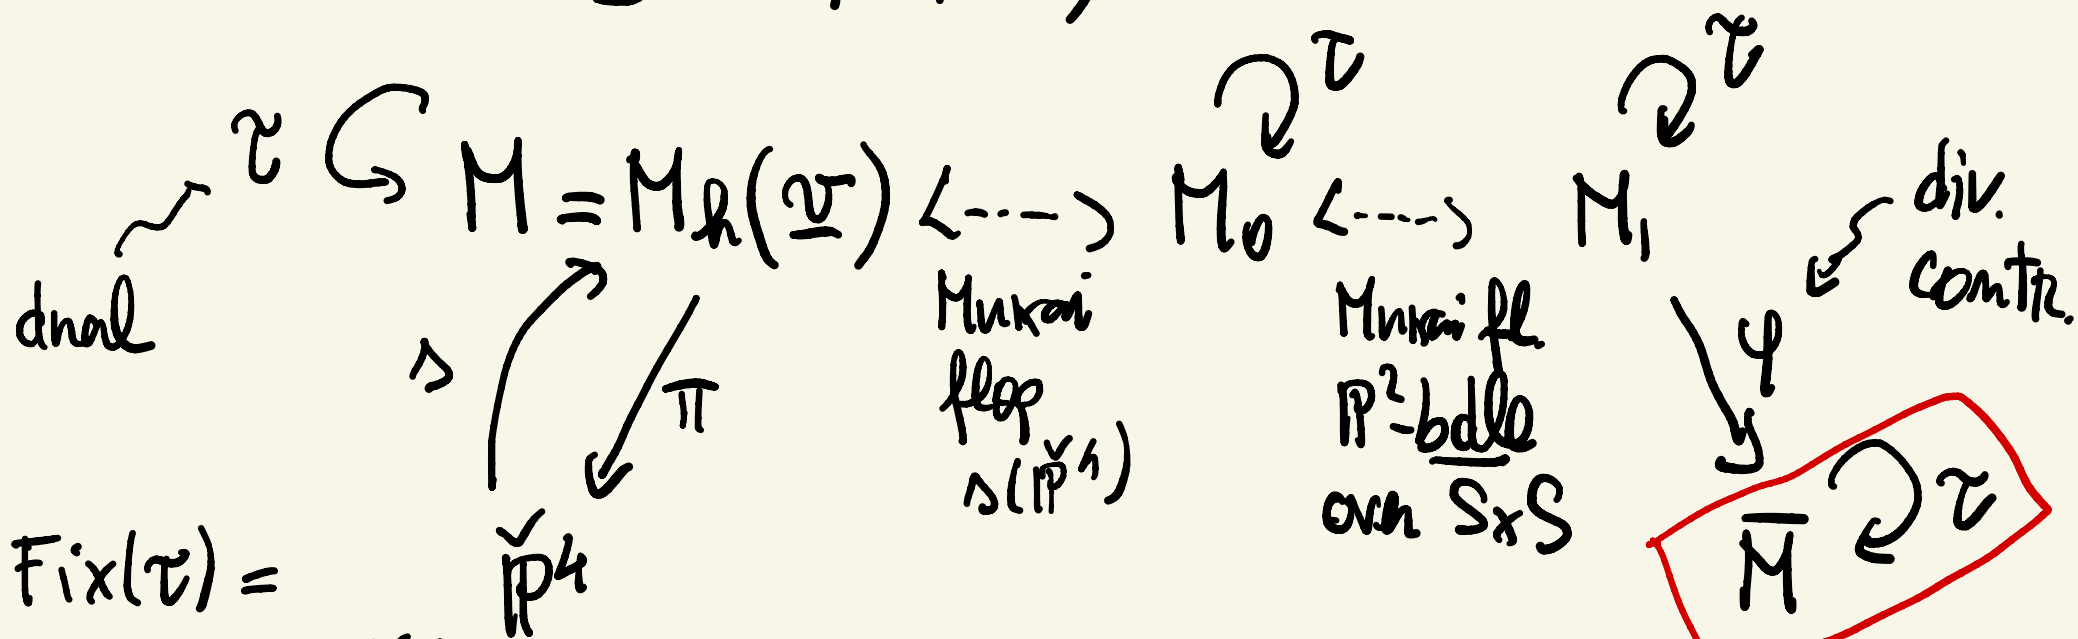 τ τ
τ M = M_h(v) ⇠⇢ M₀ ⇠⇢ M₁ div. contr.
dual s π Mukai flop s(P̌⁴) Mukai fl. P²-bdle over S×S φ
Fix(τ) = P̌⁴ M̄ τ